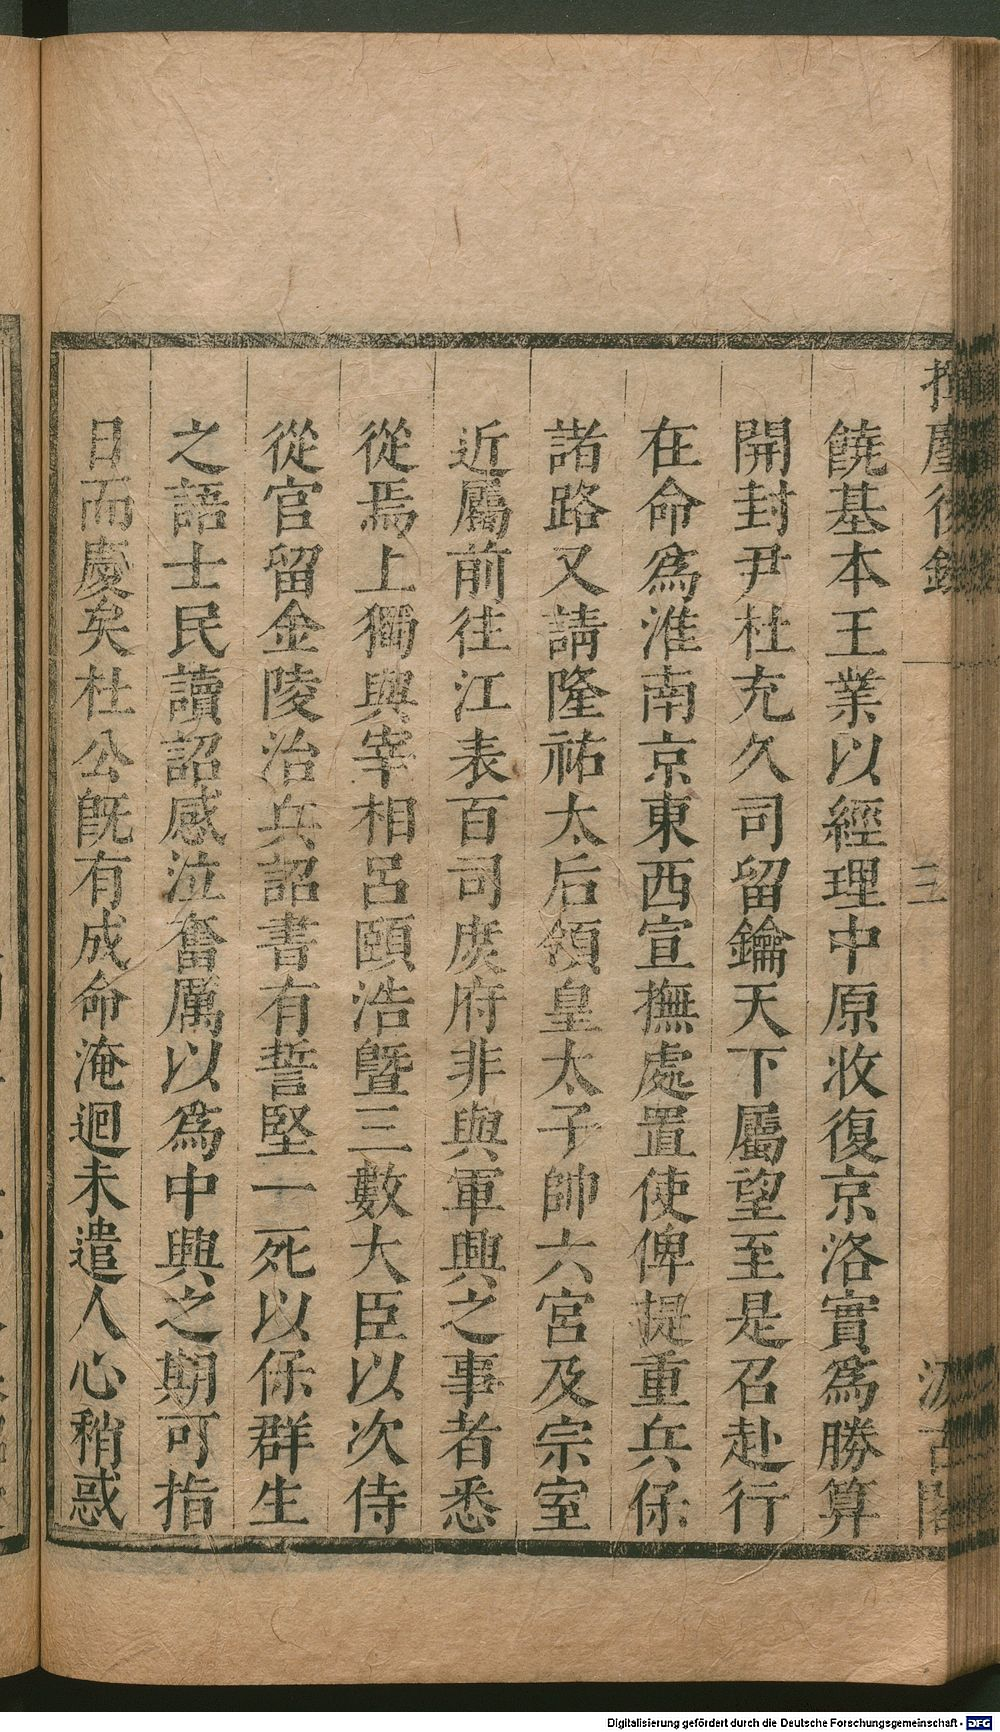 後
三
饒基本王業以經理中原收復京洛實爲勝算
開封尹杜充久司留鑰天下屬望至是召赴行
在命爲淮南京東西宣撫處置使俾提重兵保
諸路又請隆祐太后領皇太子帥六宮及宗室
近屬前往江表百司庶府非與軍興之事者悉
從焉上獨與宰相呂頤浩曁三數大臣以次侍
從官留金陵治兵詔書有誓堅一死以保群生
之語士民讀詔感泣奮厲以爲中興之期可指
日而慶矣杜公旣有成命淹迴未遣人心稍惑
Digitalisierung gefördert durch die Deutsche Forschungsgemeinschaft - DFG